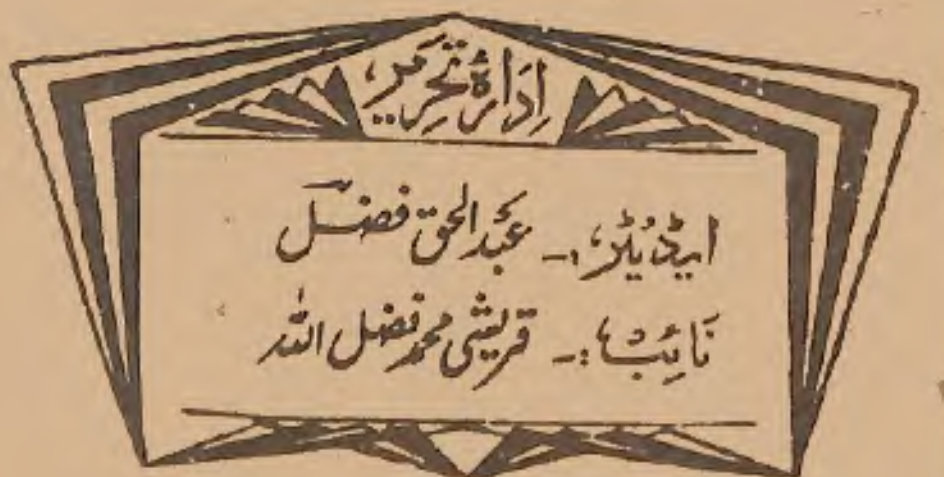 اِدَارۂ تحریر،
ایڈیٹر:۔ عبدالحق فضل
نائب:۔ قریشی محمد فضل اللہ